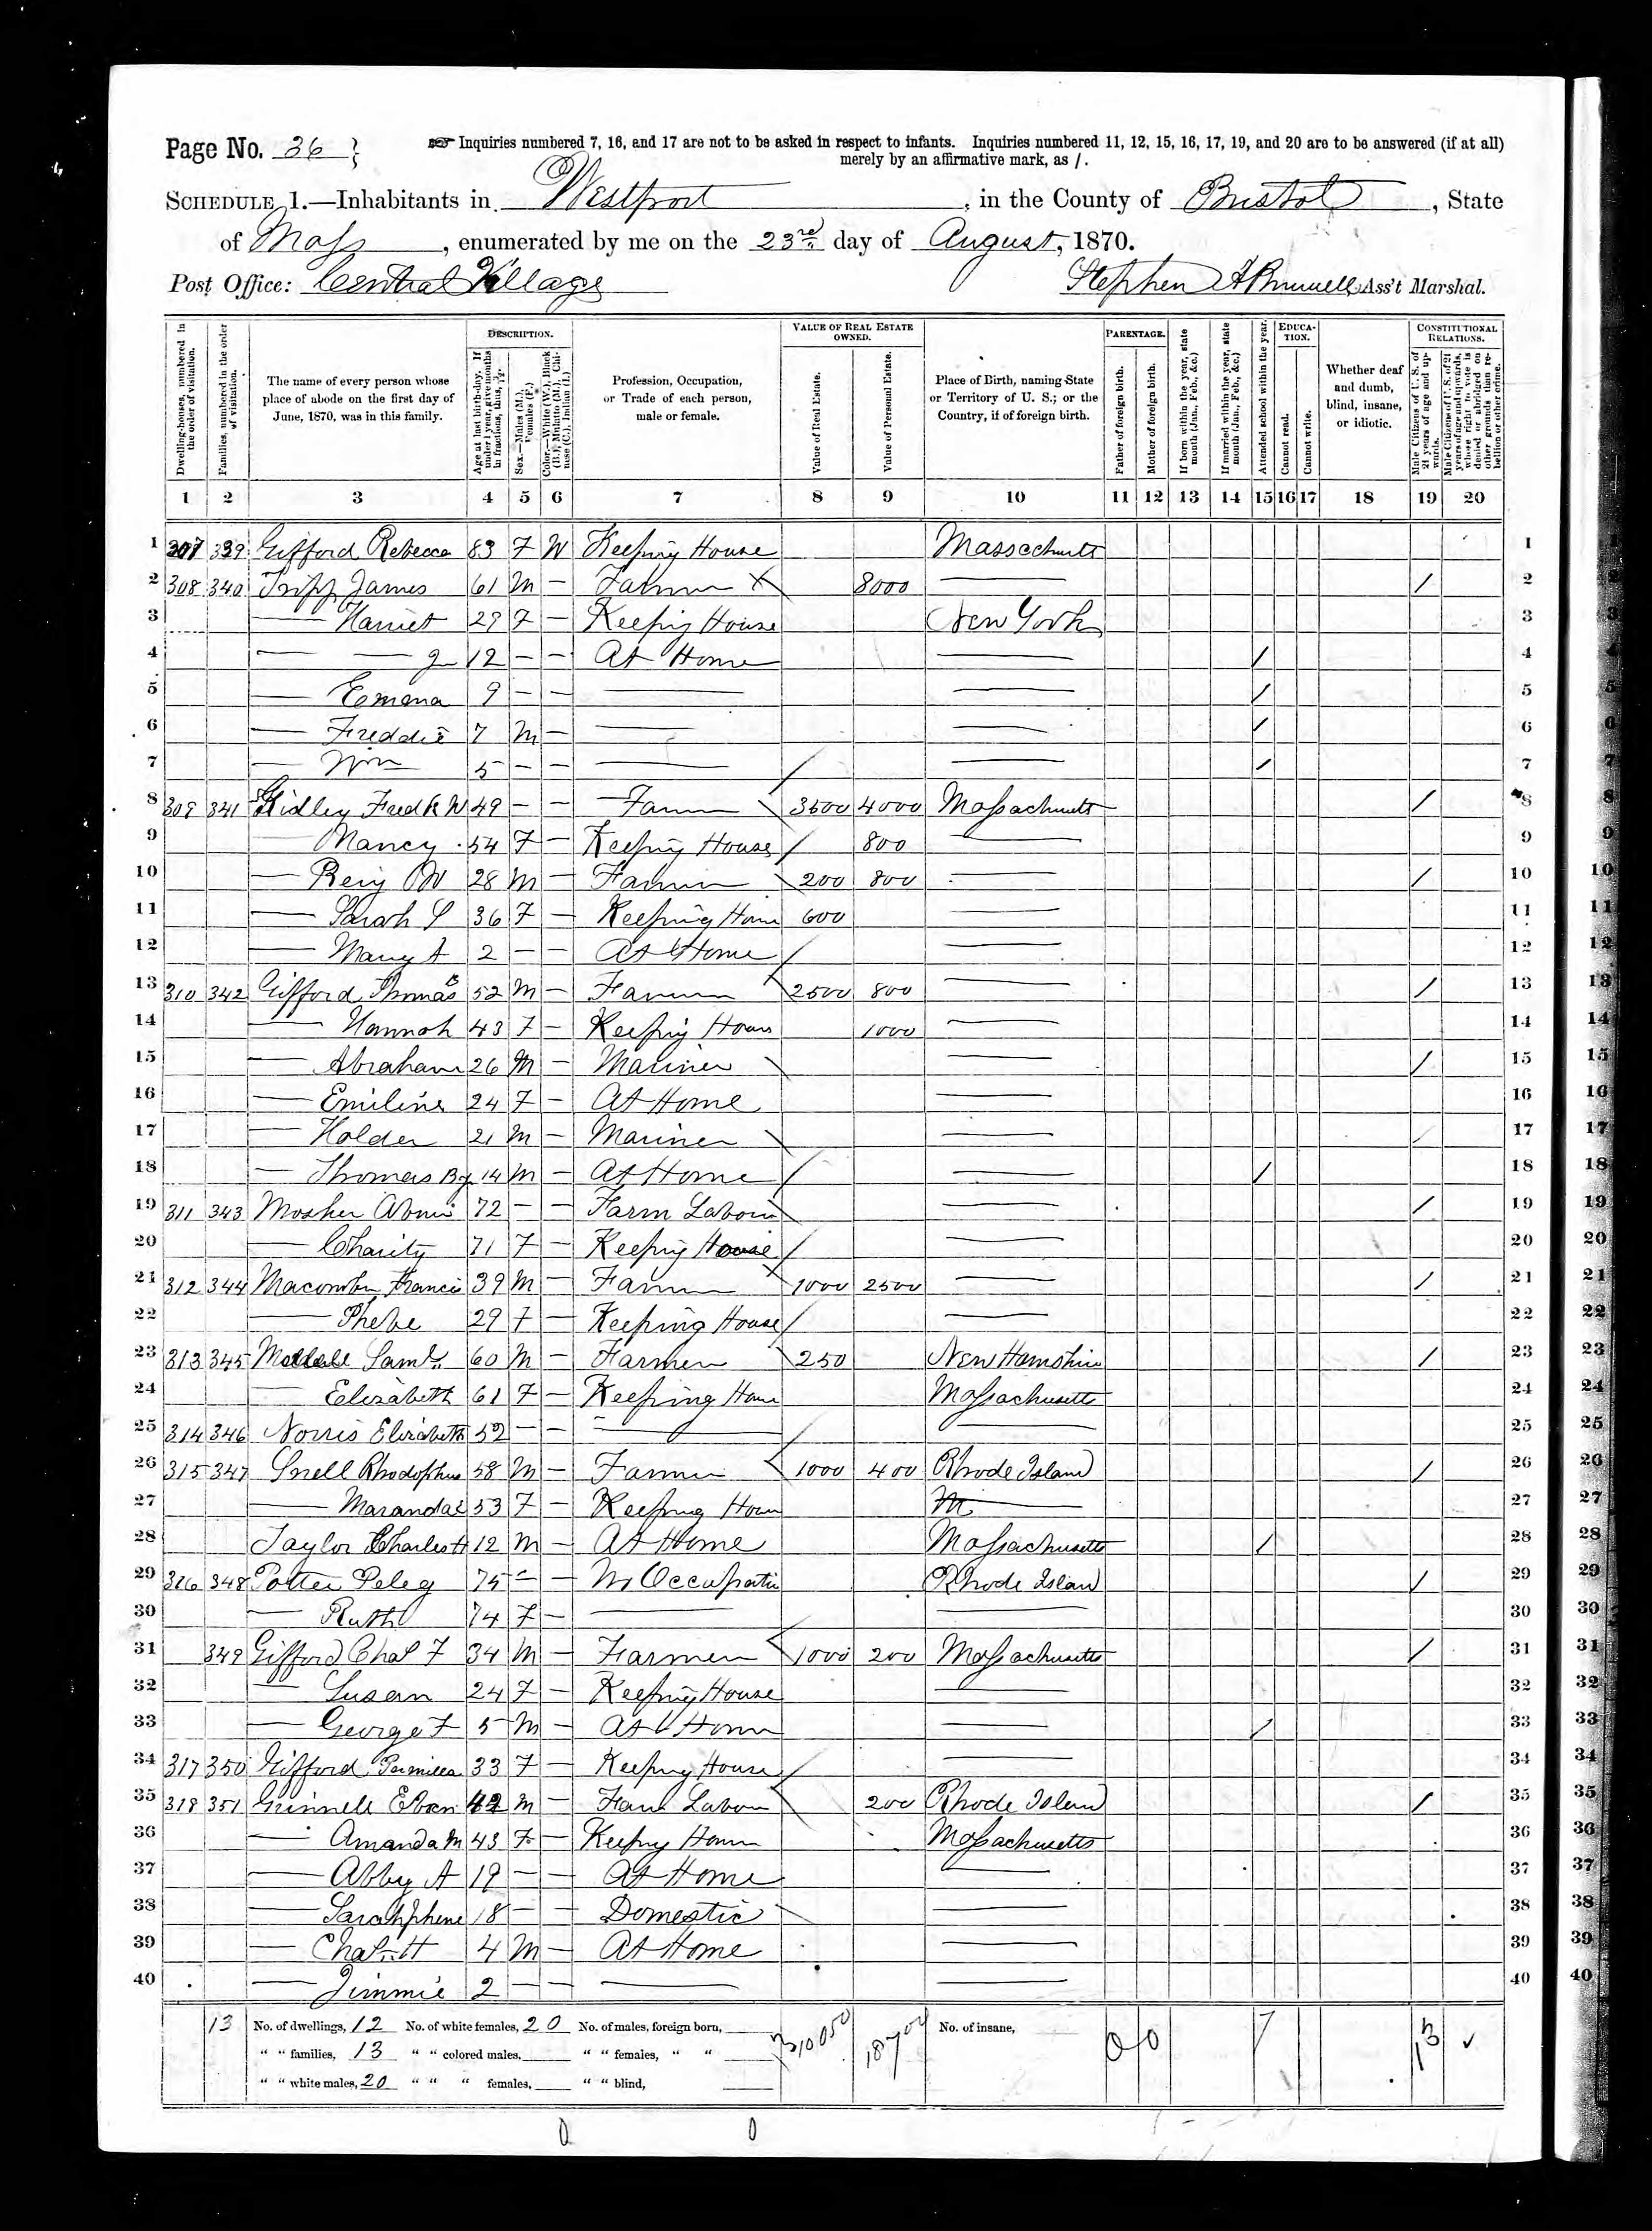 Page No. 36
Inquiries numbered 7, 16, and 17 are not to be asked in respect to infants. Inquiries numbered 11, 12, 15, 16, 17, 19, and 20 are to be answered (if at all)
merely by an affirmative mark, as /.
SCHEDULE 1.—Inhabitants in Westport, in the County of Bristol, State
of Mass, enumerated by me on the 23rd day of August, 1870.
Post Office: Central Village
Stephen Ass't Marshal.
Dwelling-houses, numbered in the order of visitation.
Families, numbered in the order of visitation.
The name of every person whose place of abode on the first day of June, 1870, was in this family.
DESCRIPTION.
Age at last birth-day. If under 1 year, give months in fractions, thus, 3/12
Sex.—Males (M.), Females (F.)
Color.—White (W.), Black (B.), Mulatto (M.), Chinese (C.), Indian (I.)
Profession, Occupation, or Trade of each person, male or female.
VALUE OF REAL ESTATE OWNED.
Value of Real Estate.
Value of Personal Estate.
Place of Birth, naming State or Territory of U. S.; or the Country, if of foreign birth.
PARENTAGE.
Father of foreign birth.
Mother of foreign birth.
If born within the year, state month (Jan., Feb., &c.)
If married within the year, state month (Jan., Feb., &c.)
Attended school within the year.
EDUCATION.
Cannot read.
Cannot write.
Whether deaf and dumb, blind, insane, or idiotic.
CONSTITUTIONAL RELATIONS.
Male Citizens of U. S. of 21 years of age and upwards.
Male Citizens of U. S. of 21 years of age and upwards, whose right to vote is denied or abridged on other grounds than rebellion or other crime.
1 2 3 4 5 6 7 8 9 10 11 12 13 14 15 16 17 18 19 20
1 307 339 Gifford Rebecca 83 F W Keeping House Massachusetts 1
2 308 340 Tripp James 61 M — Farmer 8000 — / 2
3 — Harriet 29 F — Keeping House New York 3
4 — — 12 — — At Home — / 4
5 — Emma 9 — — — — / 5
6 — Freddie 7 M — — — / 6
7 — Wm 5 — — — — / 7
8 309 341 Fredk W 49 — — Farmer 3500 4000 Massachusetts / 8
9 — Nancy 54 F — Keeping House 800 — 9
10 — W 28 M — Farmer 200 800 — / 10
11 — Sarah 36 F — Keeping House 600 — 11
12 — Mary A 2 — — At Home — 12
13 310 342 Gifford Thomas B 52 M — Farmer 2500 800 — / 13
14 — Hannah 43 F — Keeping House 1000 — 14
15 — Abraham 26 M — Mariner — / 15
16 — Emiline 24 F — At Home — 16
17 — Holder 21 M — Mariner — / 17
18 — Thomas 14 M — At Home — / 18
19 311 343 Mosher Abner 72 — — Farm Laborer — / 19
20 — Charity 71 F — Keeping House — 20
21 312 344 Macomber Francis 39 M — Farmer 1000 2500 — / 21
22 — Phebe 29 F — Keeping House — 22
23 313 345 Saml 60 M — Farmer 250 New Hamshire / 23
24 — Elizabeth 61 F — Keeping House Massachusetts 24
25 314 346 Norris Elizabeth 52 — — — — 25
26 315 347 Snell Rhodophus 58 M — Farmer 1000 400 Rhode Island / 26
27 — Maranda 53 F — Keeping House — 27
28 Taylor Charles H 12 M — At Home Massachusetts / 28
29 316 348 Potter Peleg 75 — — No Occupation Rhode Island / 29
30 — Ruth 74 F — — — 30
31 349 Gifford Chas F 34 M — Farmer 1000 200 Massachusetts / 31
32 — Susan 24 F — Keeping House — 32
33 — George F 5 M — At Home — / 33
34 317 350 Gifford 33 F — Keeping House — 34
35 318 351 Grinnell Eben 42 M — Farm Laborer 200 Rhode Island / 35
36 — Amanda M 43 F — Keeping House Massachusetts 36
37 — Abby A 19 — — At Home — 37
38 — 18 — — Domestic — 38
39 — Chas H 4 M — At Home — 39
40 — Jimmie 2 — — — — 40
13 No. of dwellings, 12 No. of white females, 20 No. of males, foreign born, 10050 18700 No. of insane, 0 0 7 13 ✓
" " families, 13 " " colored males, " " females, " "
" " white males, 20 " " " females, " " blind,
0 0